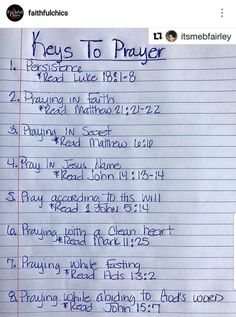 faithfulchics
itsmebfairley
Keys To Prayer
1. Persistence
*Read Luke 18:1-8
2. Praying in Faith
*Read Matthew 21:21-22
3. Praying IN Secret
*Read Matthew 6:6
4. Pray IN Jesus Name
*Read John 14:13-14
5. Pray according to His Will
*Read 1 John 5:14
6. Praying with a Clean heart
*Read Mark 11:25
7. Praying while Fasting
*Read Acts 13:2
8. Praying while abiding to God's word
*Read John 15:7